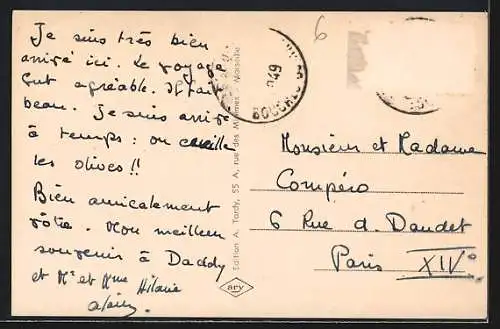 Je suis très bien
arrivé ici. Le voyage
fut agréable. Il fait
beau. Je suis arrivé
à temps : on cueille
les olives !!
Bien amicalement
vôtre. Mon meilleur
souvenir à Daddy
et Mr et Mme Hilaire
Edition A. Tardy, 55 A, rue des Marseille
ary
6
949
BOUCHES DU
Monsieur et Madame
Compéro
6 Rue d. Daudet
Paris XIVe